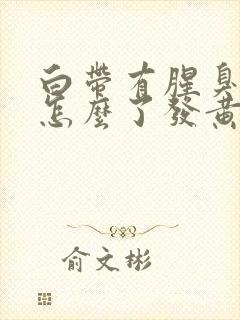 白帶有腥臭
怎麼了發黃
俞文彬